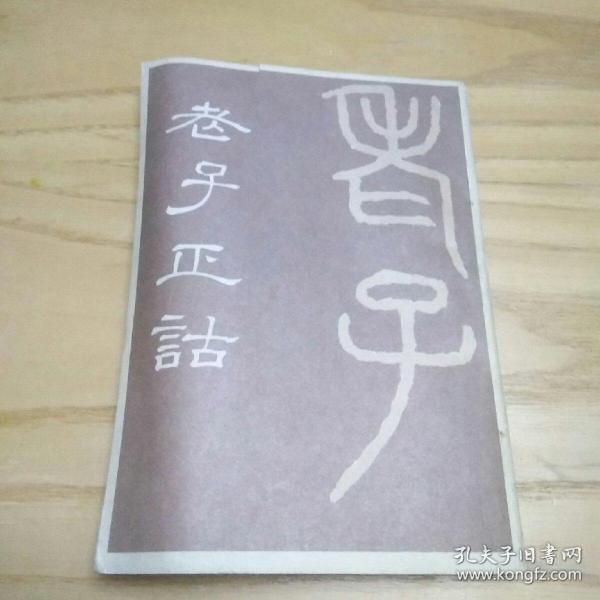 老子
老子正詁
孔夫子旧書网
www.kongfz.com